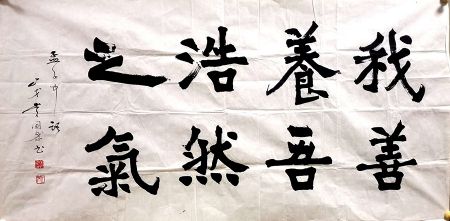 我善
養吾
浩然
之氣
孟子句